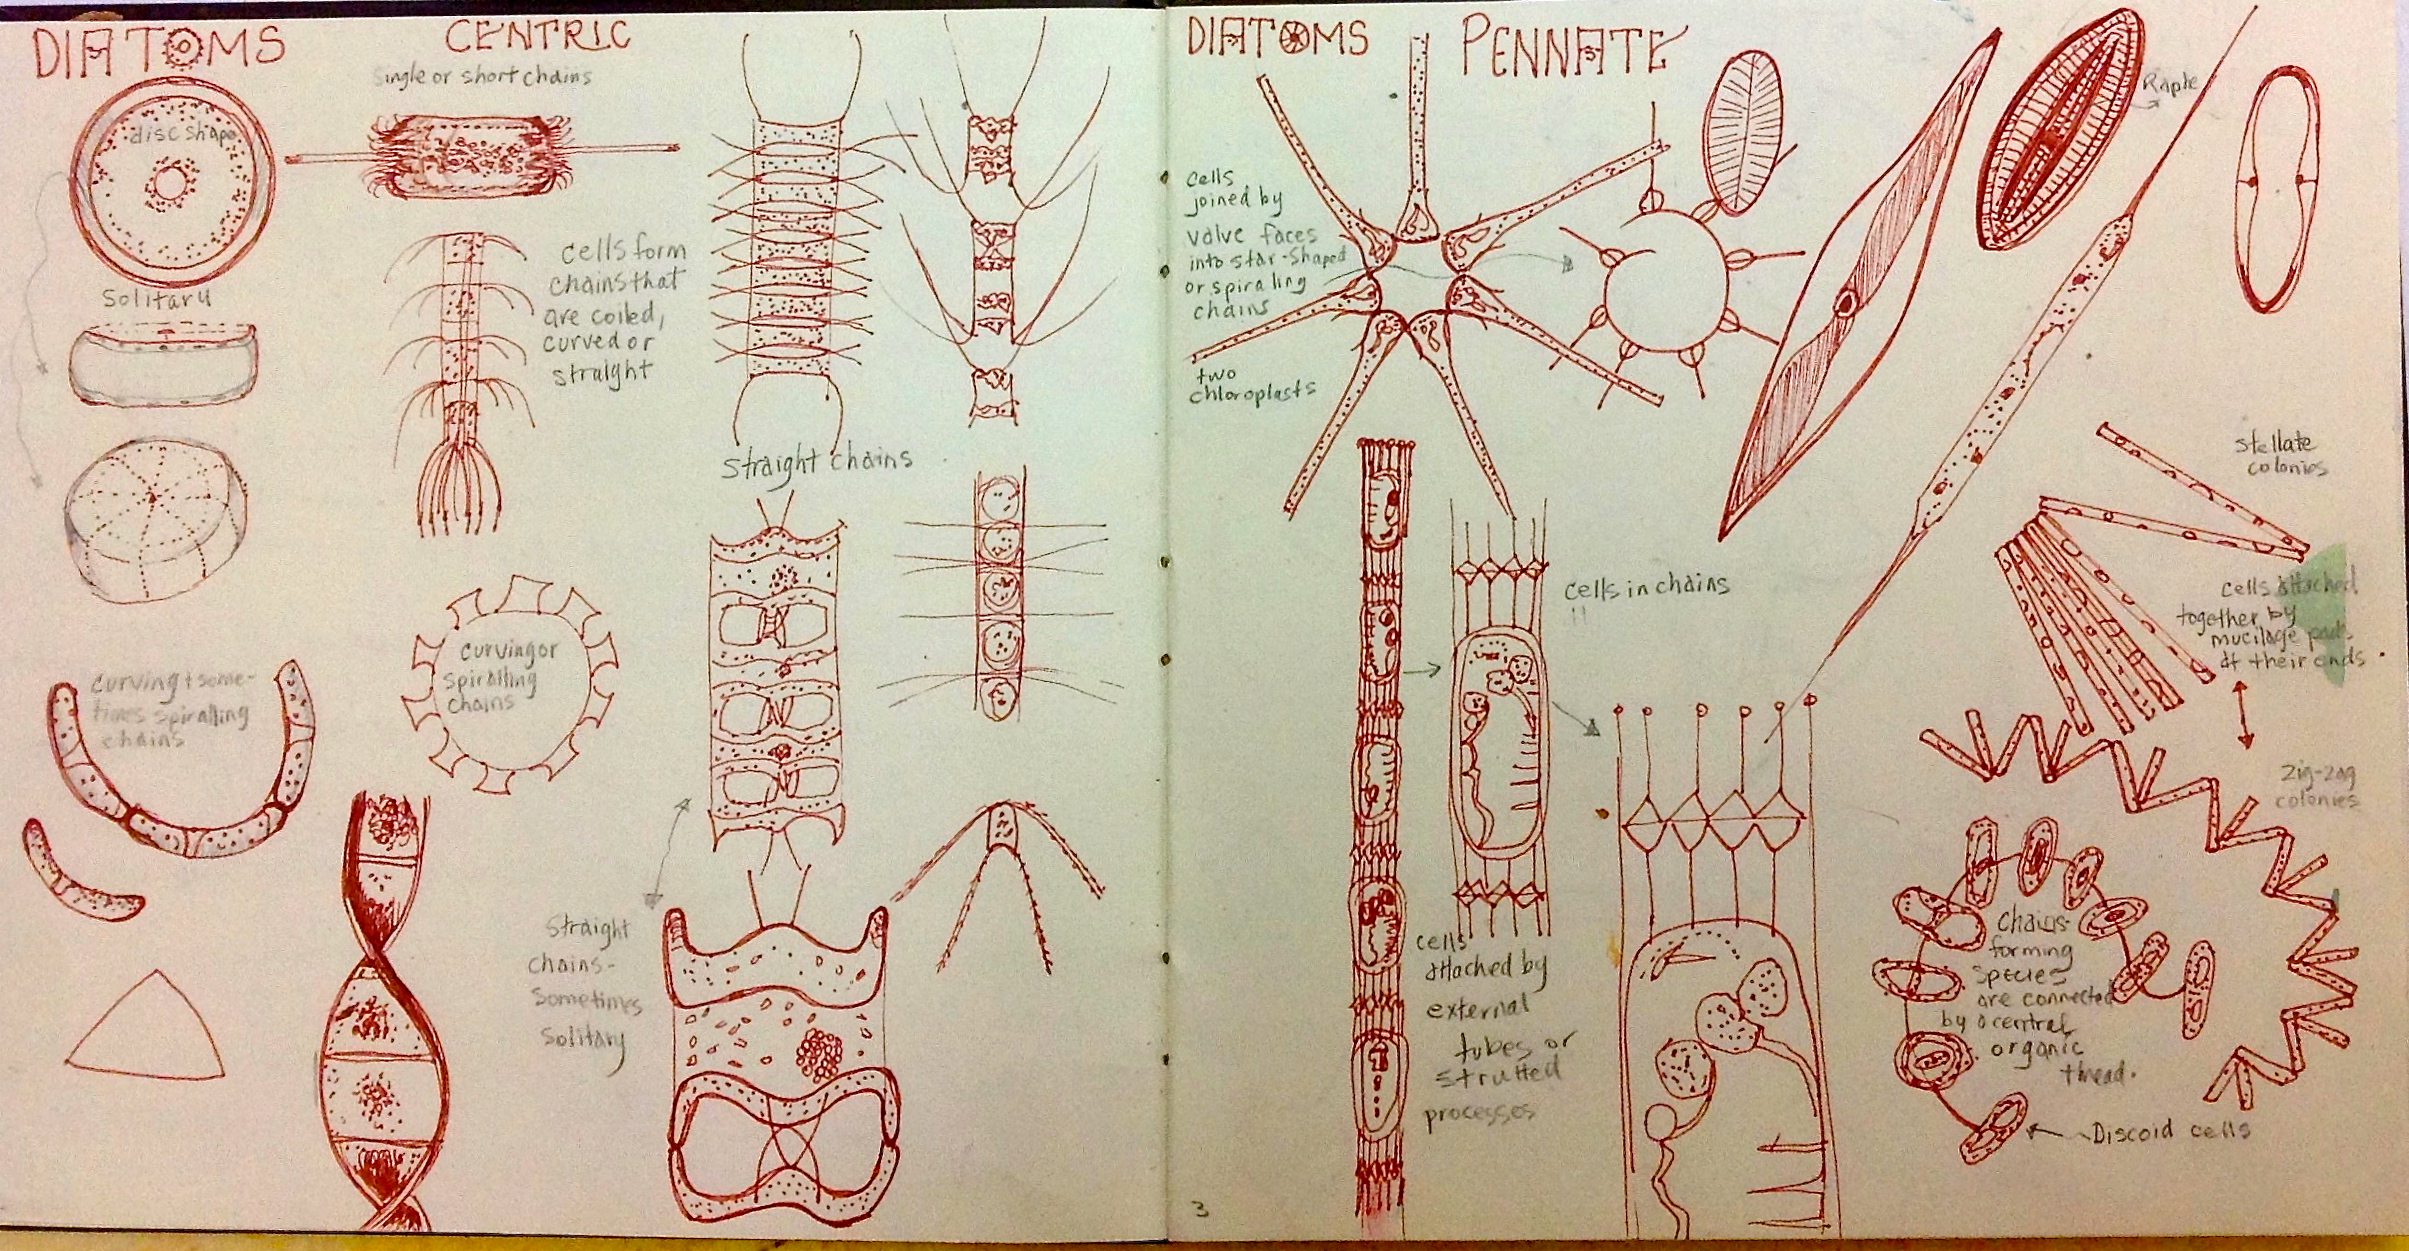 DIATOMS
CENTRIC
single or short chains
disc shape
Solitary
cells form
chains that
are coiled,
curved or
straight
straight chains
curving or
spiralling
chains
curving + some-
times spiralling
chains
Straight
chains-
sometimes
solitary
DIATOMS
PENNATE
cells
joined by
valve faces
into star-shaped
or spiraling
chains
two
chloroplasts
Raphe
stellate
colonies
cells attached
together by
mucilage pads
at their ends.
zig-zag
colonies
cells in chains
cells
attached by
external
tubes or
strutted
processes
chains-
forming
species
are connected
by a central
organic
thread.
Discoid cells
3